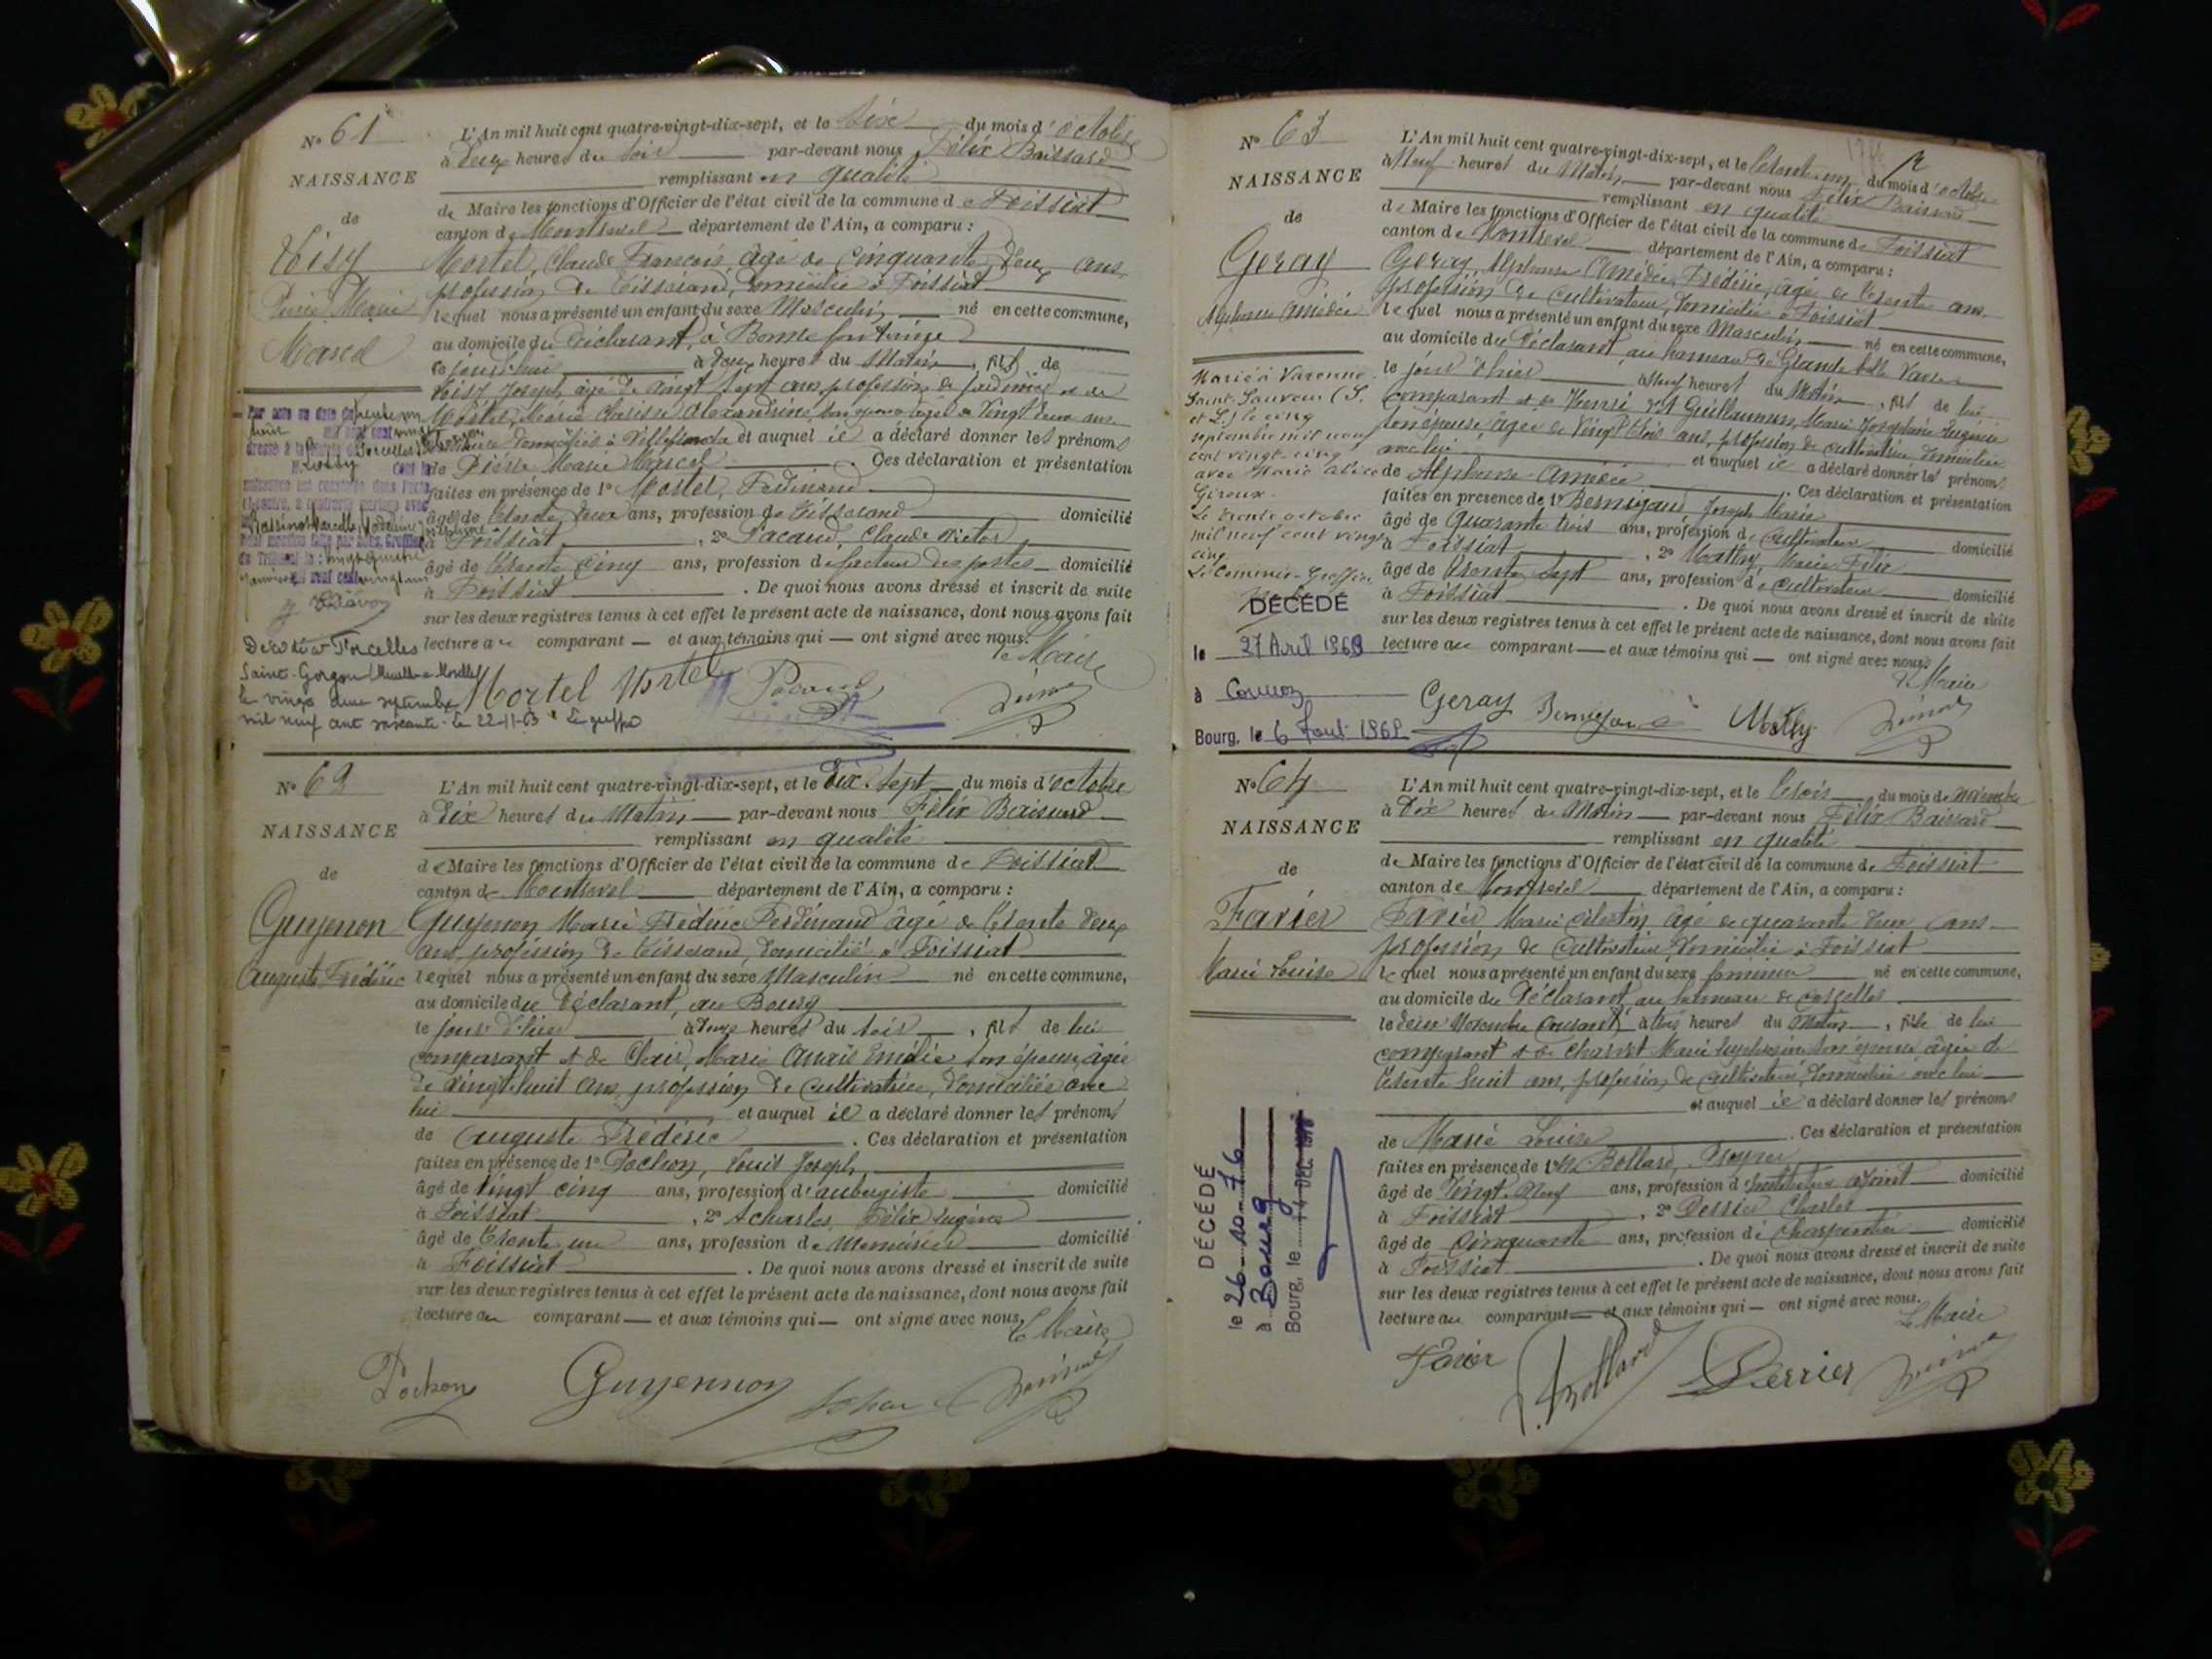 No 61
NAISSANCE
de
Pierre Marie
Marcel
L'An mil huit cent quatre-vingt-dix-sept, et le six du mois d'octobre
à deux heures du soir par-devant nous Félix Baissard
remplissant en qualité
de Maire les fonctions d'Officier de l'état civil de la commune de Foissiat
canton de Montrevel département de l'Ain, a comparu :
Mortel, Claude François âgé de cinquante deux ans,
profession de tisserand, domicilié à Foissiat
lequel nous a présenté un enfant du sexe Masculin né en cette commune,
au domicile du déclarant, à Bonne fontaine
ce jourd'hui à deux heures du Matin, fils de
Joseph, âgé de vingt sept ans profession de et de
Mortel, Marie Alexandrine, son épouse âgée de vingt deux ans
et auquel il a déclaré donner les prénoms
de Pierre Marie Marcel. Ces déclaration et présentation
faites en présence de 1° Mortel, Ferdinand
âgé de trente deux ans, profession de tisserand domicilié
à Foissiat, 2° Pacaud, Claude Victor
âgé de trente cinq ans, profession de facteur des postes domicilié
à Foissiat. De quoi nous avons dressé et inscrit de suite
sur les deux registres tenus à cet effet le présent acte de naissance, dont nous avons fait
lecture au comparant et aux témoins qui ont signé avec nous.
Le Maire
Mortel Mortel Pacaud
Décédé à
Saint-Gorgon
le vingt deux septembre
mil neuf cent soixante. Le 22-11-63 Le greffier
No 62
NAISSANCE
de
Guyenon
Auguste Frédéric
L'An mil huit cent quatre-vingt-dix-sept, et le dix-sept du mois d'octobre
à dix heures du Matin par-devant nous Félix Baissard
remplissant en qualité
de Maire les fonctions d'Officier de l'état civil de la commune de Foissiat
canton de Montrevel département de l'Ain, a comparu :
Guyenon Marie Frédéric Ferdinand âgé de trente deux
ans, profession de tisserand, domicilié à Foissiat
lequel nous a présenté un enfant du sexe Masculin né en cette commune,
au domicile du déclarant, au Bourg
le jour d'hier à heures du soir, fils de lui
comparant et de Clair, Marie Anaïs Emélie son épouse, âgée
de vingt huit ans, profession de cultivatrice, domiciliée avec
lui et auquel il a déclaré donner les prénoms
de Auguste Frédéric. Ces déclaration et présentation
faites en présence de 1° Pochon, Louis Joseph,
âgé de vingt cinq ans, profession d'aubergiste domicilié
à Foissiat, 2° Félix Eugène
âgé de trente un ans, profession de Menuisier domicilié
à Foissiat. De quoi nous avons dressé et inscrit de suite
sur les deux registres tenus à cet effet le présent acte de naissance, dont nous avons fait
lecture au comparant et aux témoins qui ont signé avec nous.
Le Maire
Pochon Guyennon
No 63
NAISSANCE
de
Geray
Alphonse Amédée
Marié à Varenne
Saint-Sauveur (S.
et L.) le cinq
septembre mil neuf
cent vingt-cinq
avec Marie Alice
Giroux.
Le trente octobre
mil neuf cent vingt
cinq.
Le Commis-Greffier
DÉCÉDÉ
le 27 Avril 1968
à
Bourg, le 6 Aout 1968
L'An mil huit cent quatre-vingt-dix-sept, et le trente un du mois d'octobre
à Neuf heures du Matin par-devant nous Félix Baissard
remplissant en qualité
de Maire les fonctions d'Officier de l'état civil de la commune de Foissiat
canton de Montrevel département de l'Ain, a comparu :
Geray, Alphonse Amédée Frédéric, âgé de trente ans
profession de cultivateur, domicilié à Foissiat
lequel nous a présenté un enfant du sexe Masculin né en cette commune,
au domicile du déclarant, au hameau de Grande
le jour d'hier à Neuf heures du Matin, fils de lui
comparant et de Guillaumon, Marie Joséphine Eugénie
son épouse âgée de vingt trois ans, profession de cultivatrice domiciliée
avec lui et auquel il a déclaré donner les prénoms
de Alphonse Amédée. Ces déclaration et présentation
faites en présence de 1° Bernigaud Joseph Marie
âgé de quarante trois ans, profession de cultivateur domicilié
à Foissiat, 2° Mathy, Marie Félix
âgé de trente sept ans, profession de cultivateur domicilié
à Foissiat. De quoi nous avons dressé et inscrit de suite
sur les deux registres tenus à cet effet le présent acte de naissance, dont nous avons fait
lecture au comparant et aux témoins qui ont signé avec nous.
Le Maire
Geray Bernigaud Mathy
No 64
NAISSANCE
de
Favier
Marie Louise
DÉCÉDÉ
le 26-10-76
à Bourg
Bourg, le
L'An mil huit cent quatre-vingt-dix-sept, et le trois du mois de novembre
à dix heures du Matin par-devant nous Félix Baissard
remplissant en qualité
de Maire les fonctions d'Officier de l'état civil de la commune de Foissiat
canton de Montrevel département de l'Ain, a comparu :
Favier Marie Célestin âgé de quarante deux ans
profession de cultivateur, domicilié à Foissiat
lequel nous a présenté un enfant du sexe féminin né en cette commune,
au domicile du déclarant au hameau de
le deux Novembre courant à trois heures du Matin, fille de lui
comparant et de Charvet Marie son épouse, âgée de
trente huit ans, profession de cultivatrice, domiciliée avec lui
et auquel il a déclaré donner les prénoms
de Marie Louise. Ces déclaration et présentation
faites en présence de 1° M. Bollard,
âgé de vingt-neuf ans, profession d'Instituteur adjoint domicilié
à Foissiat, 2° Perrier Charles
âgé de cinquante ans, profession de charpentier domicilié
à Foissiat. De quoi nous avons dressé et inscrit de suite
sur les deux registres tenus à cet effet le présent acte de naissance, dont nous avons fait
lecture au comparant et aux témoins qui ont signé avec nous.
Le Maire
Favier Bollard Perrier